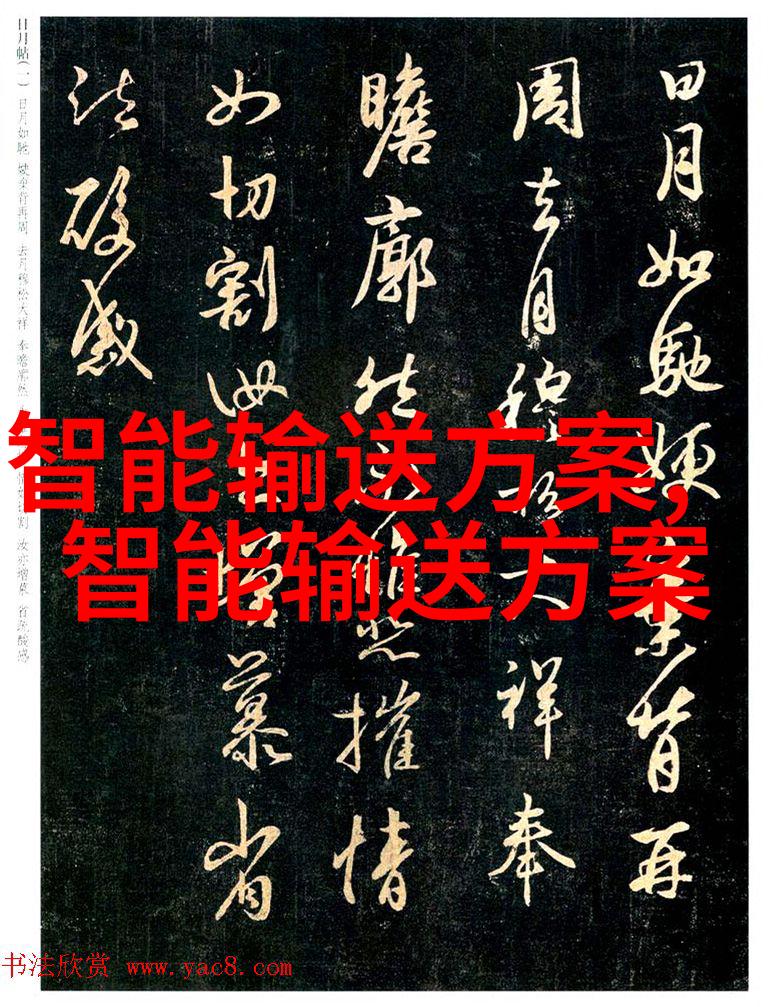 日月如馳嫂棄背再
周去月穆松大祥奉
瞻廓然永惟悲摧情
如切割汝亦增慕省
疏酸感
日月帖(一) 日月如馳 嫂棄背再周 去月穆松大祥 奉瞻廓然 情如切割 汝亦增慕 省疏酸感
智能输送方案,
智能输送方案
书法欣赏 www.yac8.com